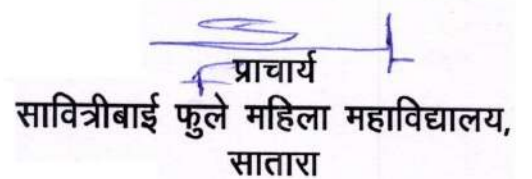 प्राचार्य
सावित्रीबाई फुले महिला महाविद्यालय,
सातारा